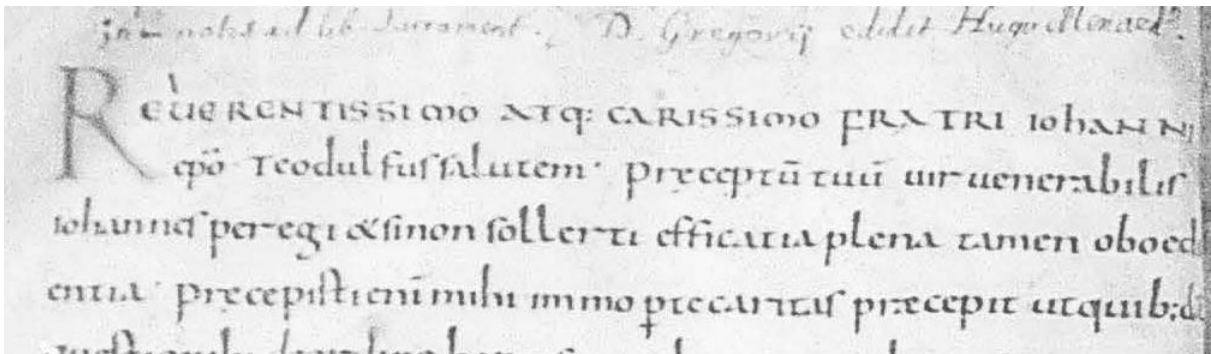 in notis ad lib Sacrament. D. Gregorij edidit Hugo Menard
REUERENTISSIMO ATQ: CARISSIMO FRATRI IOHANNI
epō Teodulfus salutem· Pręceptū tuū uir uenerabilis
iohannes peregi & si non sollerti efficatia plena tamen oboedi
entia· Pręcepisti enī mihi immo p te caritas pręcepit ut quib: di